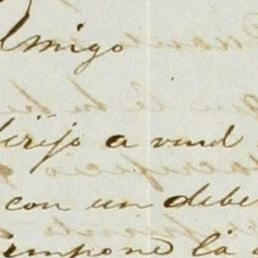 Amigo
dirijo a vmd
con un debe
impone la